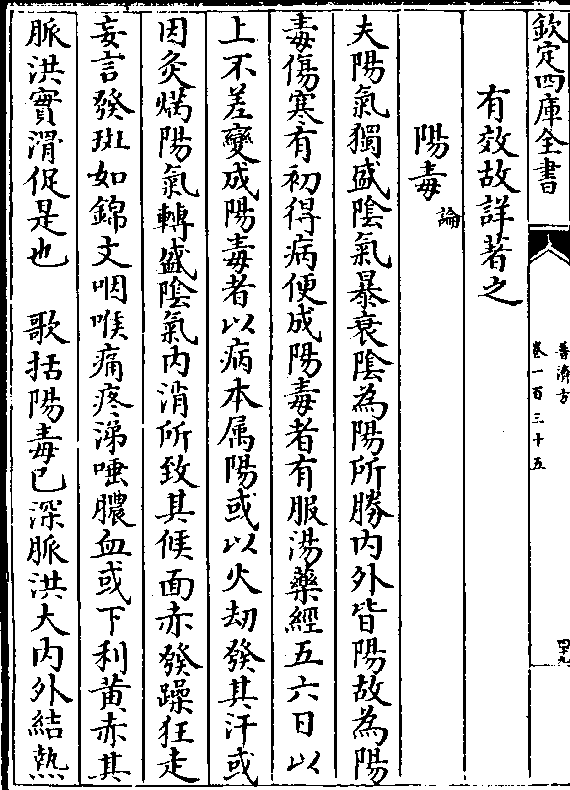 欽定四庫全書
普濟方
卷一百三十五
有效故詳著之
陽毒論
夫陽氣獨盛陰氣暴衰陰為陽所勝内外皆陽故為陽
毒傷寒有初得病便成陽毒者有服湯藥經五六日以
上不差變成陽毒者以病本属陽或以火刼發其汗或
因灸焫陽氣轉盛陰氣内消所致其候面赤發躁狂走
妄言發斑如錦文咽喉痛疼涕唾膿血或下利黄赤其
脈洪實滑促是也　歌括陽毒已深脈洪大内外結熱